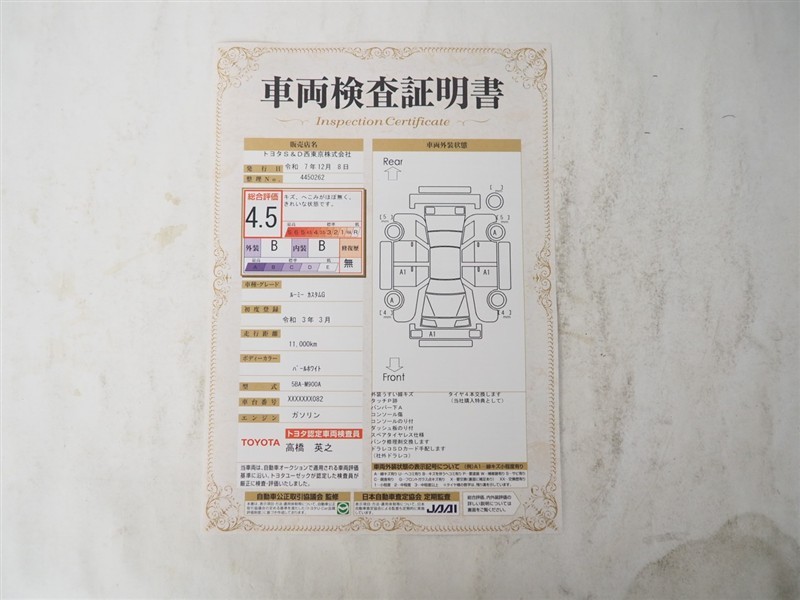 車両検査証明書
Inspection Certificate
販売店名
トヨタS&D西東京株式会社
発行日 令和 7年12月 8日
整理No. 4450262
総合評価
4.5
キズ、へこみがほぼ無く、
きれいな状態です。
外装 B 内装 B 修復歴
無
A B C D E
車種・グレード
ルーミー カスタムG
初度登録
令和 3年 3月
走行距離
11,000km
ボディーカラー
パールホワイト
型式 5BA-M900A
車台番号 XXXXXXX082
エンジン ガソリン
TOYOTA トヨタ認定車両検査員
高橋 英之
当車両は、自動車オークションで適用される車両評価
基準に沿い、トヨタユーゼックが認定した検査員が
厳正に検査・評価いたしました。
車両外装状態
Rear
[5] [5]
A A
A1 A1
A
[4] [4]
A1
Front
外装うすい線キズ
タッチP跡
バンパー下A
コンソール傷
コンソールのり付
ダッシュ板のり付
スペアタイヤレス仕様
パンク修理剤交換します
ドラレコSDカード手配します
(社外ドラレコ)
タイヤ4本交換します
(当社購入特典として)
車両外装状態の表示記号について (例)A1…線キズ小程度有り
自動車公正取引協議会 監修
日本自動車査定協会 定期監査
JAAI
総合評価、内外装評価の
詳しい説明については
裏面をご覧ください。